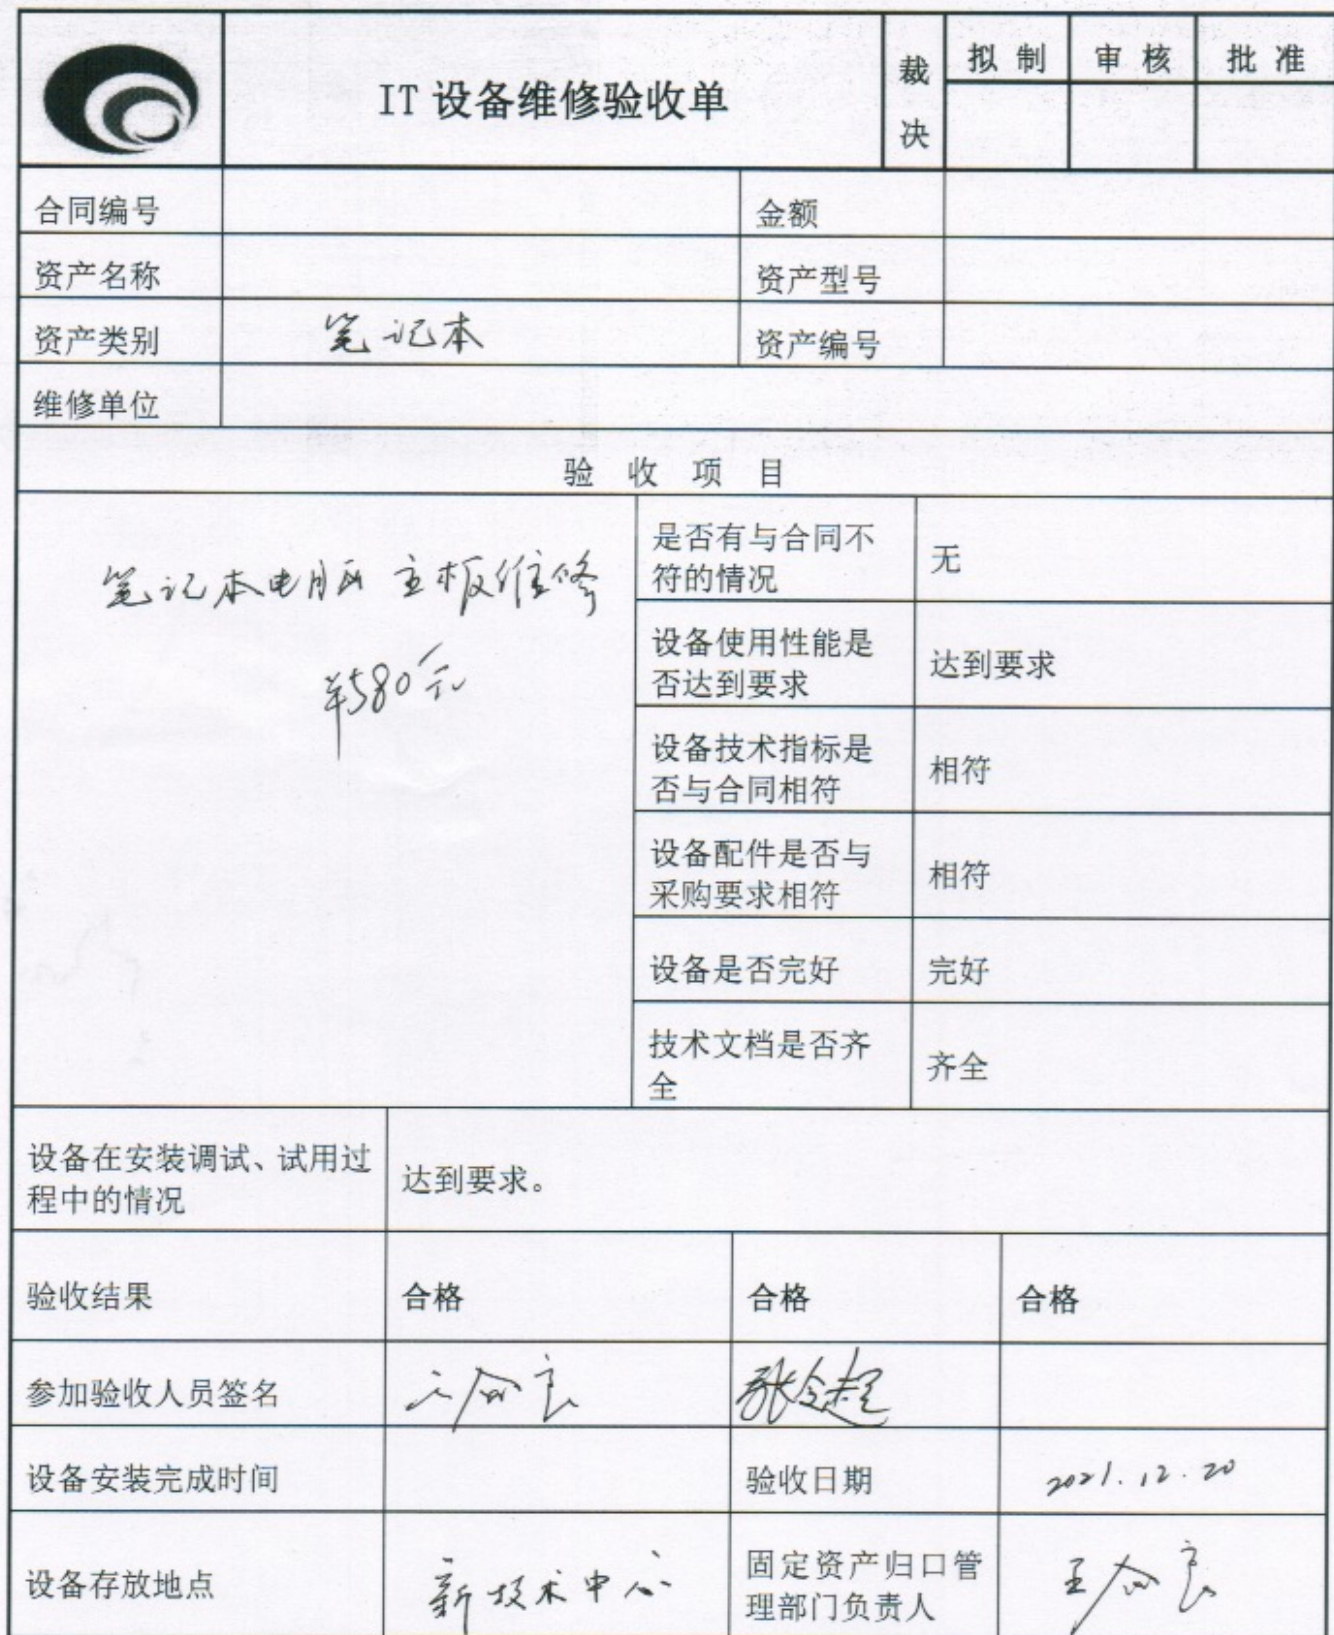 IT 设备维修验收单
裁决
拟 制
审 核
批 准
合同编号
金额
资产名称
资产型号
资产类别
笔记本
资产编号
维修单位
验 收 项 目
笔记本电脑 主板维修
¥580元
是否有与合同不
符的情况
无
设备使用性能是
否达到要求
达到要求
设备技术指标是
否与合同相符
相符
设备配件是否与
采购要求相符
相符
设备是否完好
完好
技术文档是否齐
全
齐全
设备在安装调试、试用过
程中的情况
达到要求。
验收结果
合格
合格
合格
参加验收人员签名
设备安装完成时间
验收日期
2021.12.20
设备存放地点
新技术中心
固定资产归口管
理部门负责人